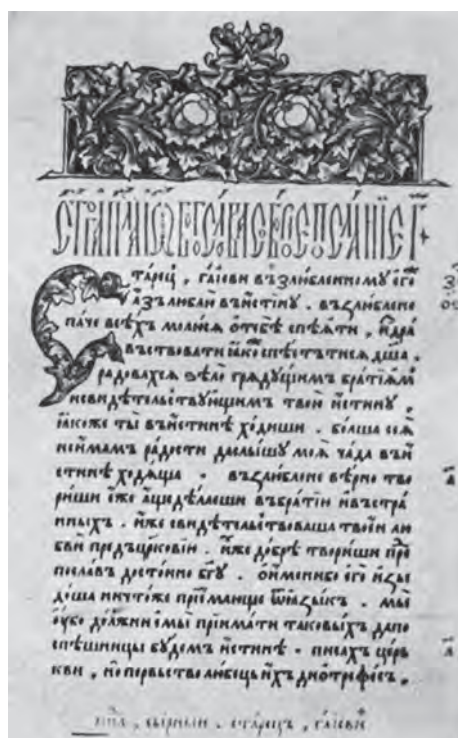 ста́рець, га́іеви възлю́бленному его́
а́зъ любл́ю въи́стину. възлю́блене
па́че всѣ́хъ молю́ся ѡтебѣ̀ спѣ́яти, и҆здра
въствовати ꙗ҆́коже спѣе́тътися дш҃а.
радовахся зѣло̀ гряду́щимъ бра́тїямъ
исвидѣ́тельствꙋющимъ твое́й и҆́стинѣ,
ꙗ҆́коже ты̀ въи́стинѣ хо́диши. бо́лша сея̀
неи́мамъ ра́дости даслы́шу моя̀ ча́да въи́
стинѣ ходяща. възлю́блене вѣ́рно тво
ри́ши е҆́же а҆́щедѣ́лаеши въбра́тїи и҆въстра́
нныхъ. и҆̀же свидѣ́тельствоваша твое́й лю
бвѝ предъцр҃ковїю. и҆̀хже до́брѣ твори́ши пре
посла́въ досто́йно бг҃у. ѡ҆и́менибо его̀ и҆зы́
доша ничто́же прїе́млюще ѿꙗ҆зы́къ. мы̀
ᲂу҆́бо до́лжни е҆смы̀ прїима́ти таковы́хъ дапо
спѣ́шницы бу́демъ и҆́стинѣ. писа́хъ це́рь
кви, но первьство лю́бець и҆́хъ дио҆трефе́съ,
ста́рець, га́іеви